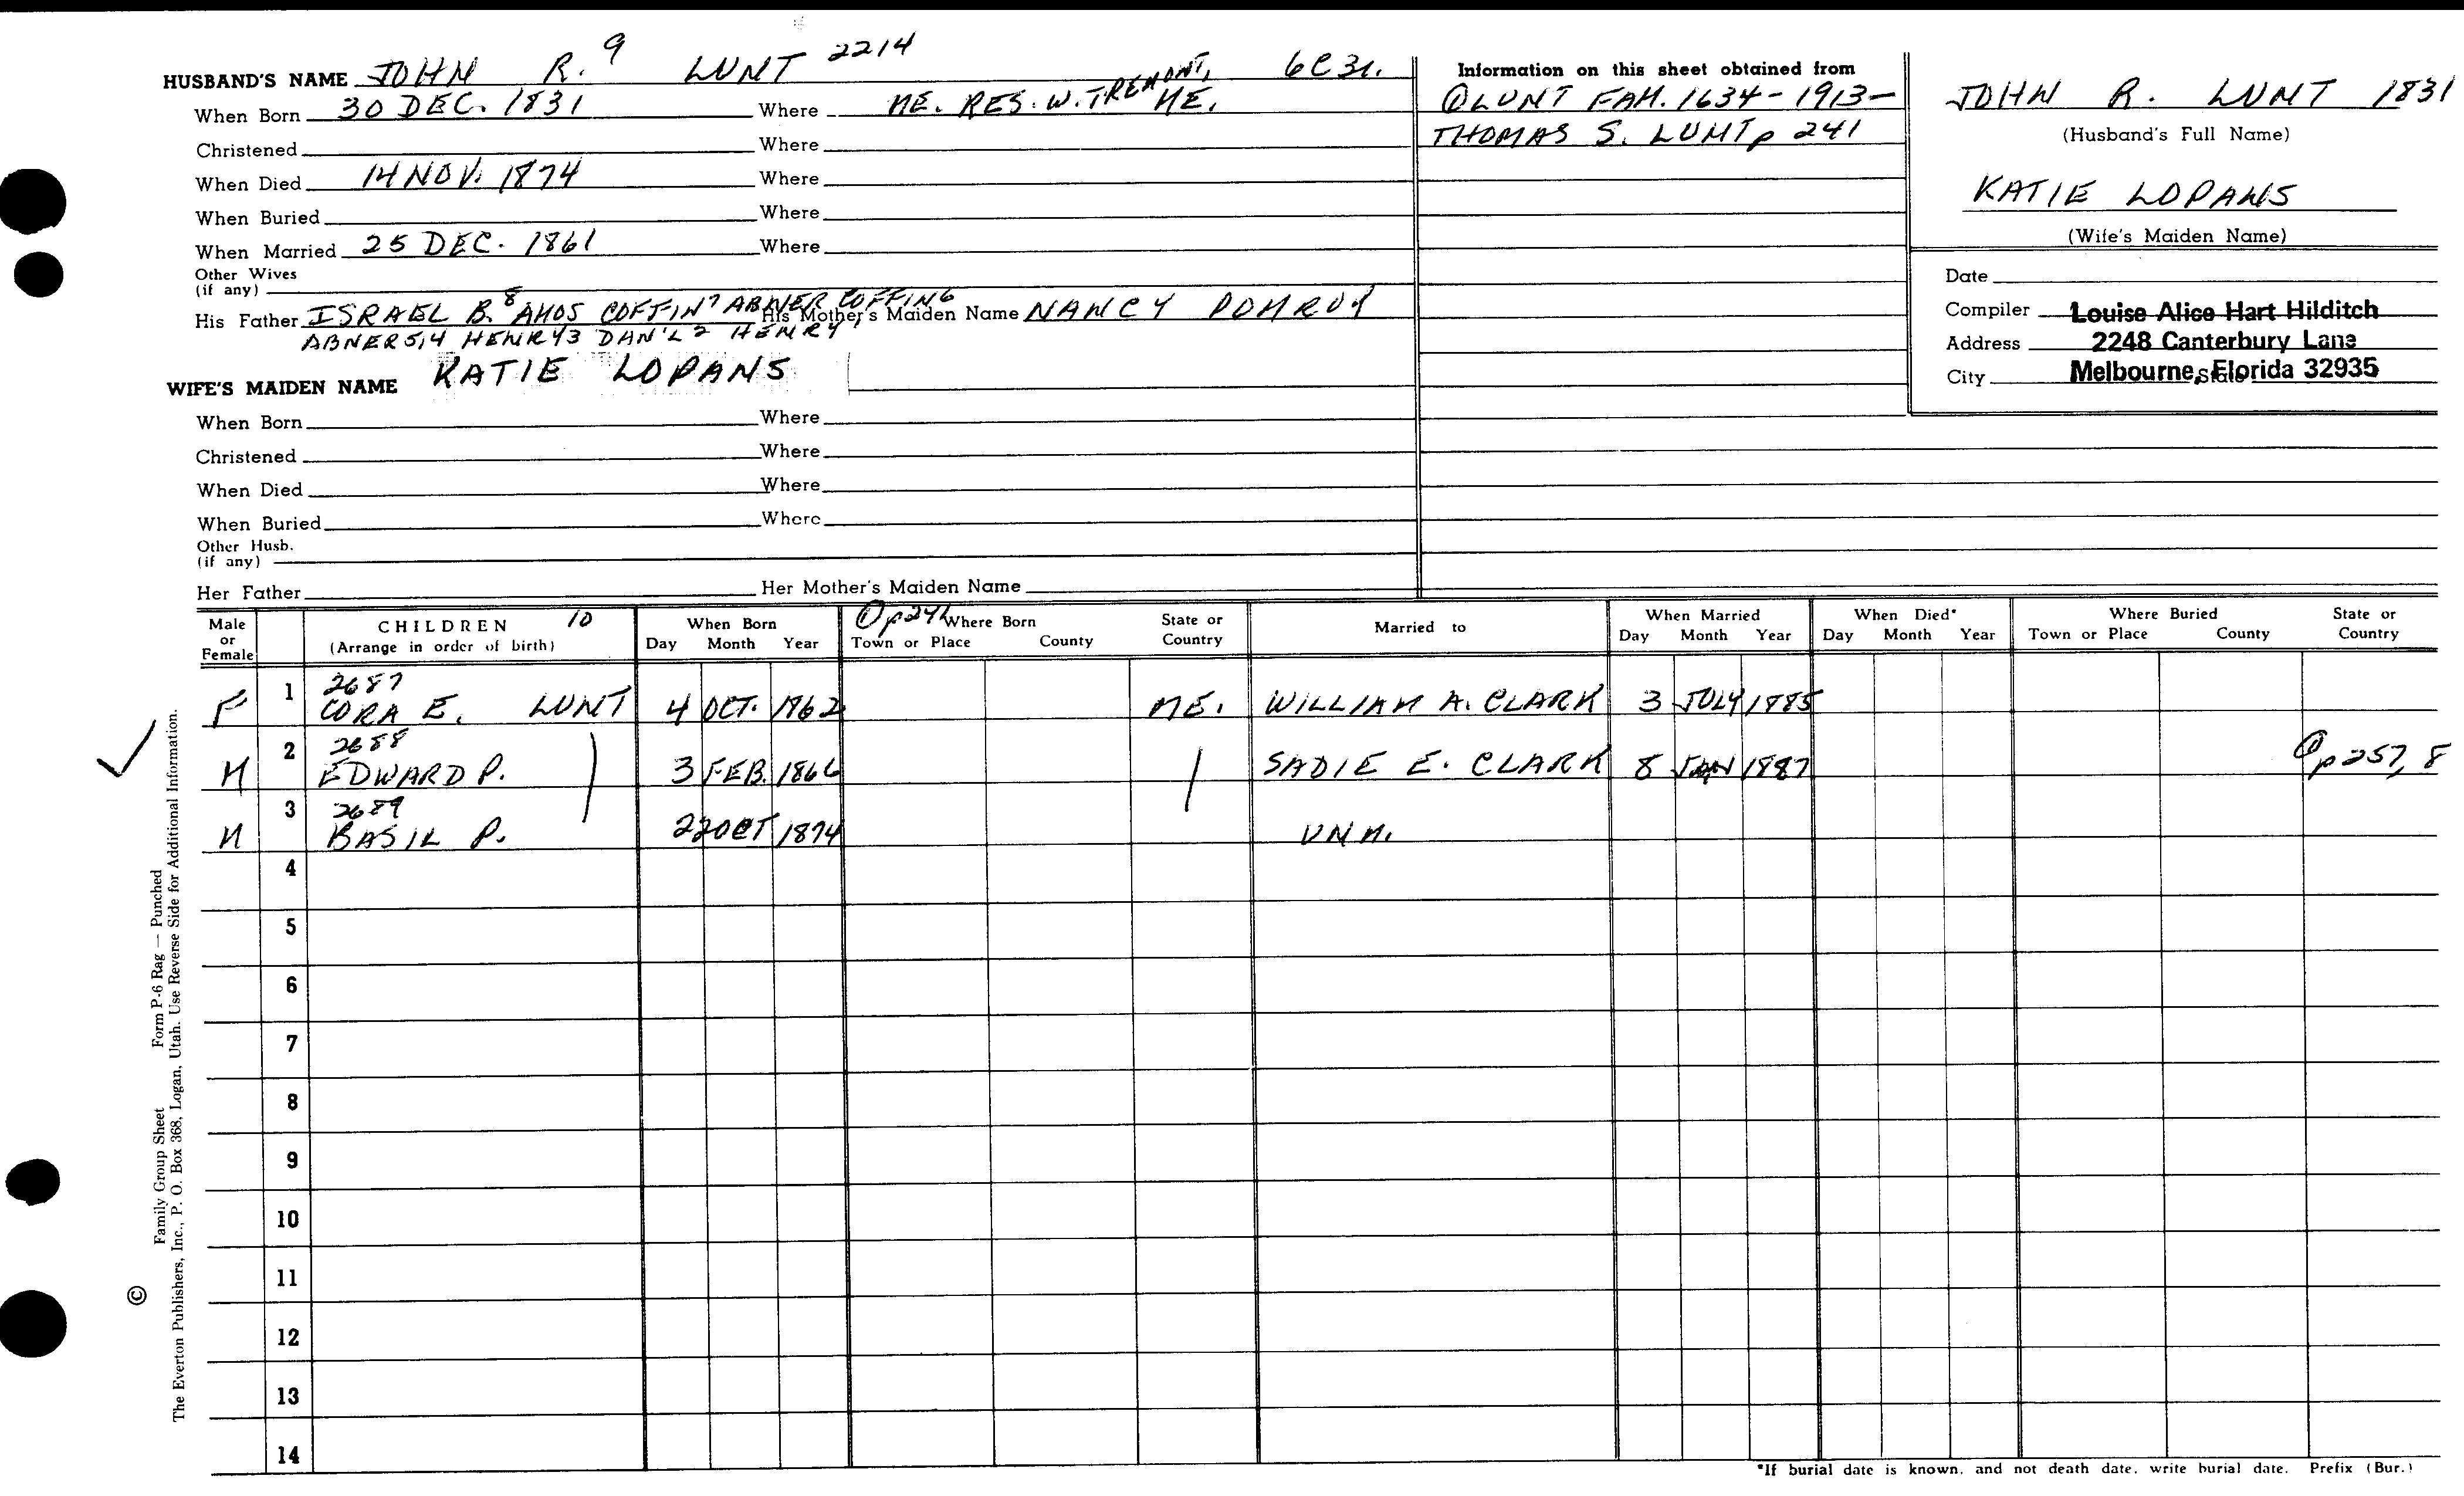 HUSBAND'S NAME JOHN R. 9 LUNT 2214 6C31.
When Born 30 DEC. 1831 Where ME. RES. W. TREMONT, ME.
Christened Where
When Died 14 NOV. 1874 Where
When Buried Where
When Married 25 DEC. 1861 Where
Other Wives
(if any)
His Father ISRAEL B.8 AMOS COFFIN7 ABNER COFFIN6 His Mother's Maiden Name NANCY POMROY
ABNER5,4 HENRY3 DAN'L2 HENRY1
WIFE'S MAIDEN NAME KATIE LOPANS
When Born Where
Christened Where
When Died Where
When Buried Where
Other Husb.
(if any)
Her Father Her Mother's Maiden Name
Information on this sheet obtained from
① LUNT FAM. 1634-1913-
THOMAS S. LUNT p 241
JOHN R. LUNT 1831
(Husband's Full Name)
KATIE LOPANS
(Wife's Maiden Name)
Date
Compiler Louise Alice Hart Hilditch
Address 2248 Canterbury Lane
City Melbourne, Florida 32935
State
Male or Female CHILDREN 10 (Arrange in order of birth) When Born Day Month Year ① p241 Where Born Town or Place County State or Country Married to When Married Day Month Year When Died* Day Month Year Where Buried Town or Place County State or Country
1 2687
F CORA E. LUNT 4 OCT. 1862 ME. WILLIAM A. CLARK 3 JULY 1885
2 2688
M EDWARD P. 3 FEB. 1866 SADIE E. CLARK 8 JAN 1887 ① p257, 8
3 2689
M BASIL P. 22 OCT 1874 UNM.
4
5
6
7
8
9
10
11
12
13
14
*If burial date is known, and not death date, write burial date. Prefix (Bur.)
© Family Group Sheet Form P-6 Rag — Punched
The Everton Publishers, Inc., P. O. Box 368, Logan, Utah. Use Reverse Side for Additional Information.